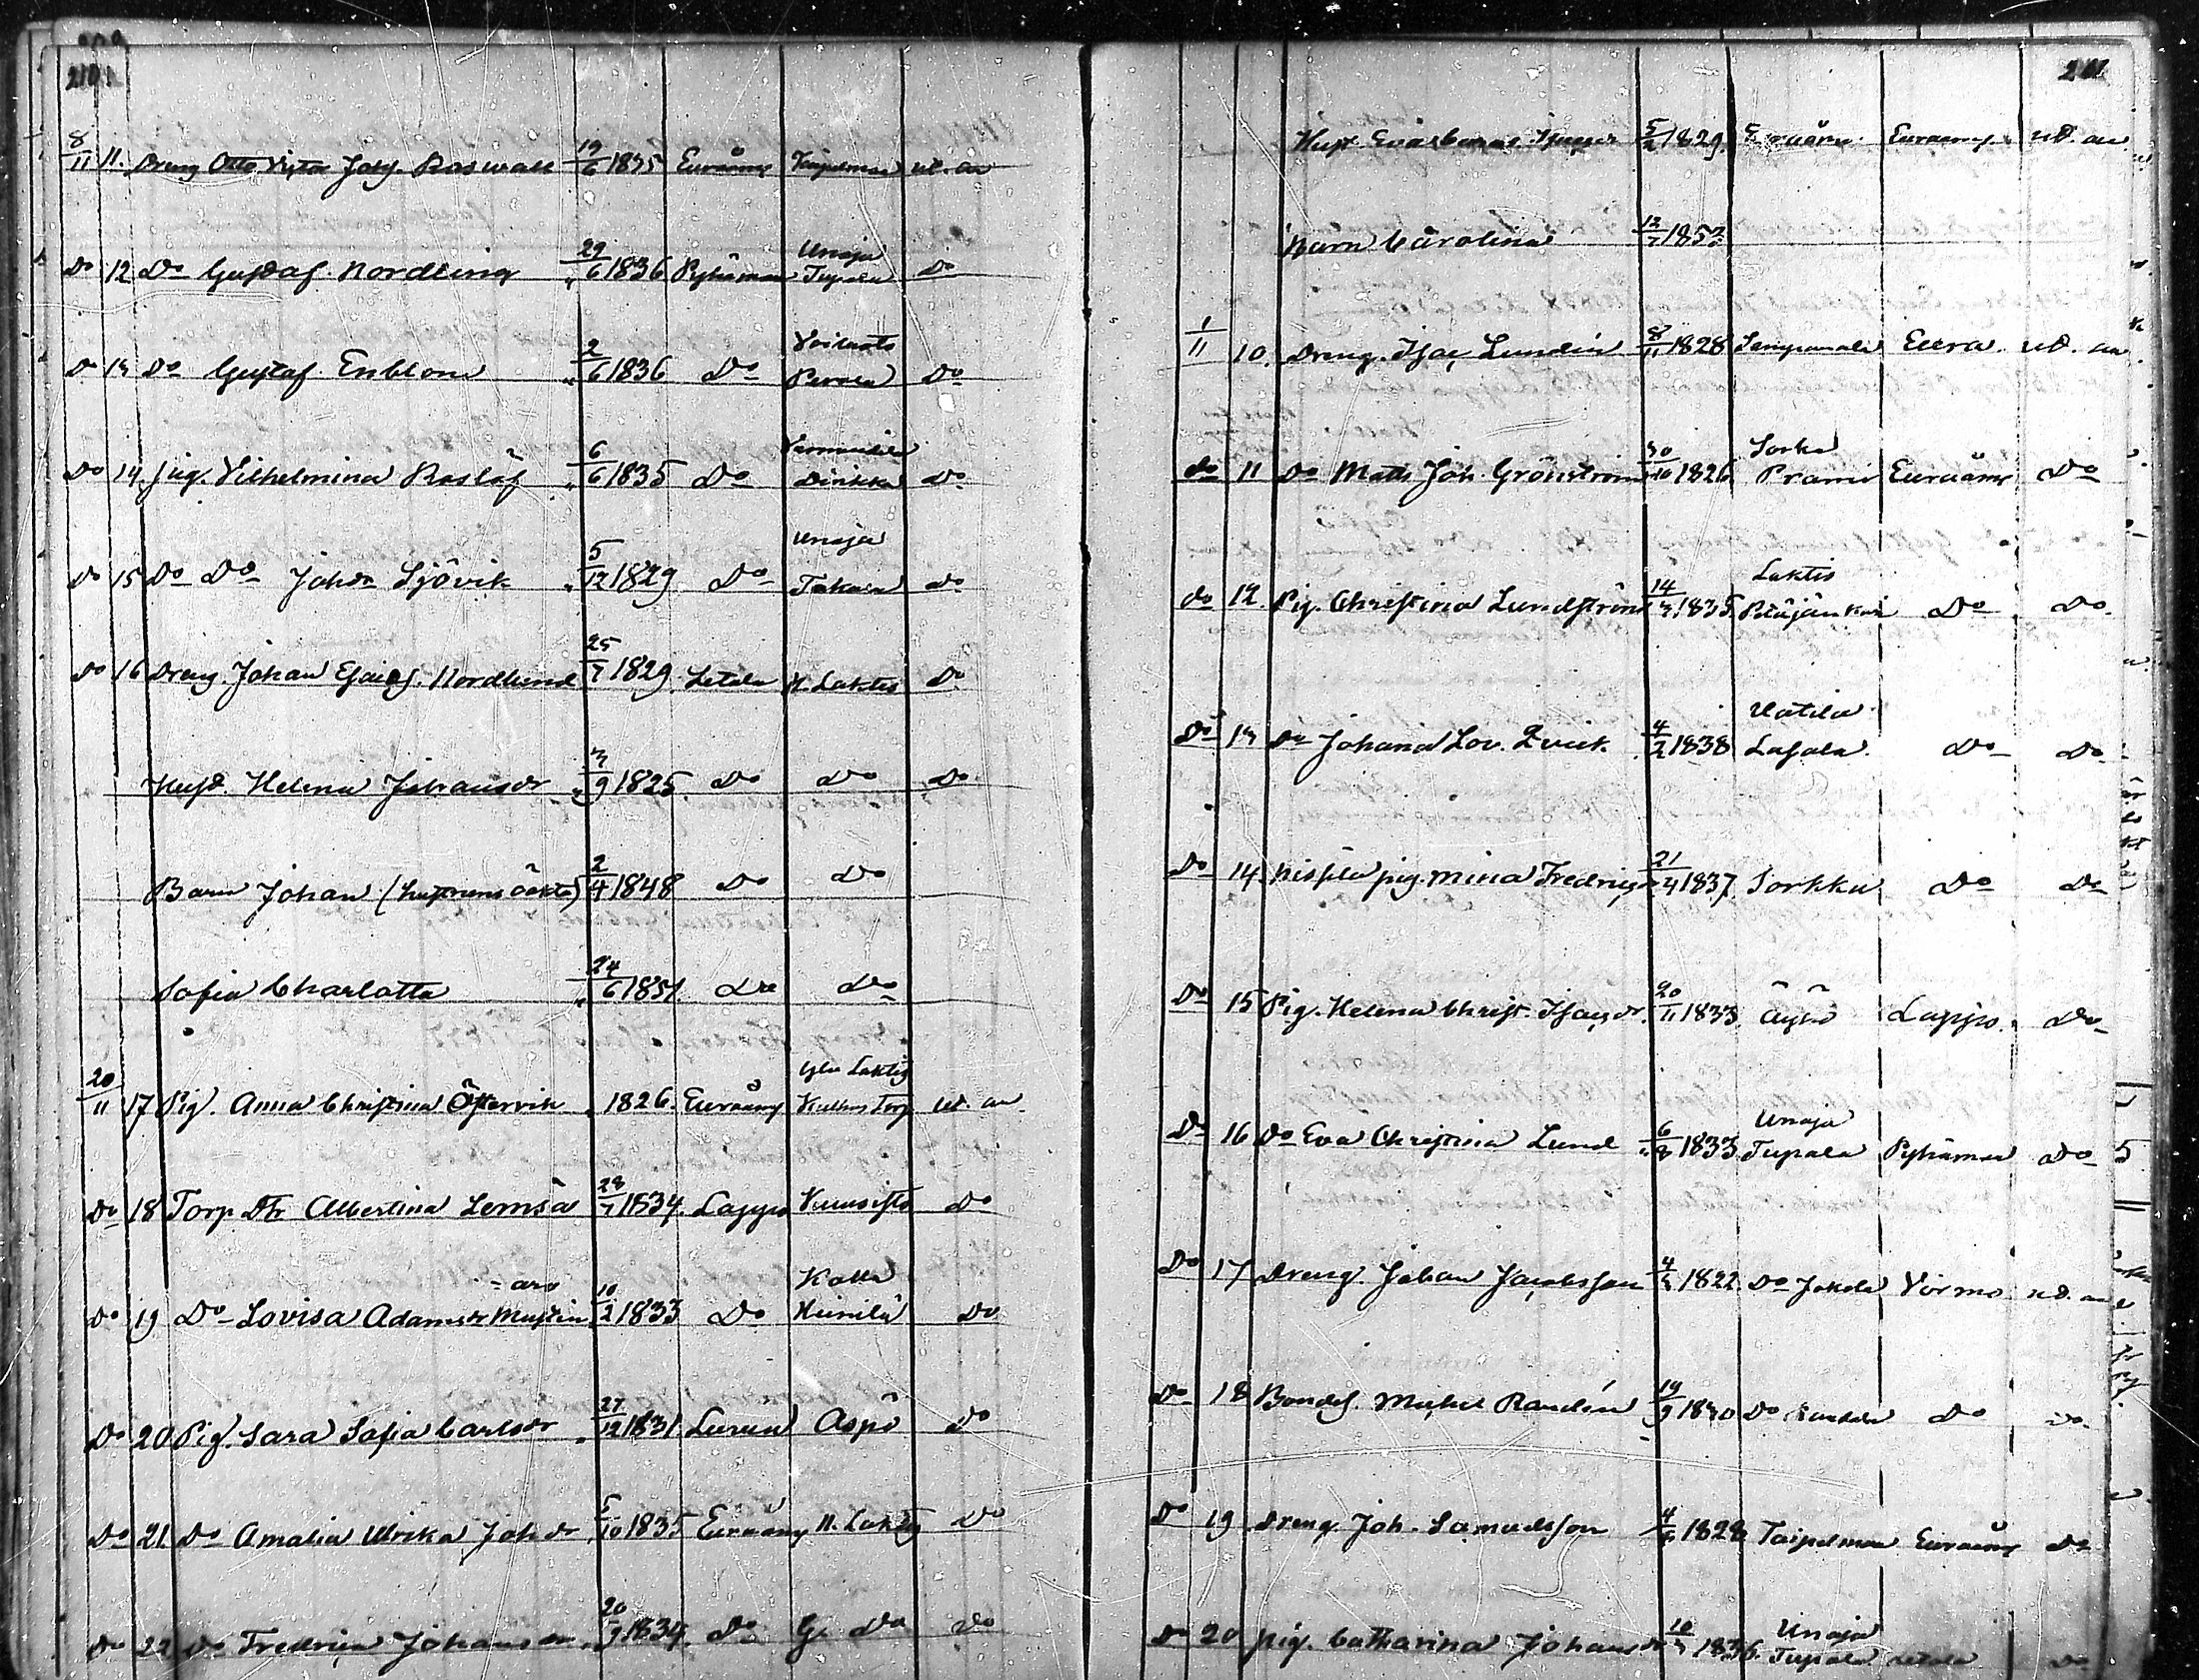 8/11 11. Dreng Otto Victor Joh.s. Roswall 19/6 1835 Euraåm. Taipalmaa ut. an
Do 12 Do Gustaf Nordling 29/6 1836 Pyhämaa Unaja Tupala Do
Do 13 Do Gustaf Enblom 2/6 1836 Do Voiluoto Perola Do
Do 14. pig. Vilhelmina Roslöf 6/6 1835 Do Do
Do 15 Do Do Johan Sjövik 5/12 1829 Do Unaja Takala Do
Do 16 Dreng. Johan Esaias. Nordlund 25/7 1829 Letala N. Laktis Do
Hust. Helena Johansdr 3/9 1825 Do Do Do
Barn Johan (hustruns oäkta) 2/4 1848 Do Do
Sofia Charlotta 24/6 1851 Do Do
20/11 17 Pig. Anna Christina Östervik 1826. Euraåm. Laktis Torp ut. an
Do 18 Torp Dtr Albertina Lemsä 28/7 1834. Lappo Kuusisto Do
= aro
Do 19 Do Lovisa Adamsdr Mustin 10/2 1833 Do Kolla Heinilä Do
Do 20 Pig. Sara Sofia Carlsdr 27/12 1831 Luvia Aspö Do
Do 21. Do Amalia Ulrika Joh dr 5/10 1835 Euraåm. N. Laktis Do
Do 22 Do Fredrica Johansdr 20/9 1834. Do G. Do Do
Hust. 5/2 1829. Euraåm. Euraåm. ut. an
Barn Carolina 12/7 1853
1/11 10. Dreng. Isac Lundin 8/11 1828 Eura. ut. an
do 11 Do Matts Joh. Grönström 30/10 1826 Sorka Prami Euraåm. Do
do 12. Pig. Christina Lundström 14/3 1835. Laktis Petäjäs Do Do
Do 13 Do Johana Lov. Qvick 4/2 1838 Vätilä Lasala Do Do
Do 14. pig. Mina Fredrics 21/4 1837. Sorkka Do Do
Do 15 Pig. Helena Christ. Isacsdr. 20/11 1833 Äyhö Lappo. Do
Do 16 Do Eva Christina Lund 6/8 1833 Unaja Tupala Pyhämaa Do
Do 17 Dreng. Johan Jacobsson 4/3 1822. Do Jokela Virmo ut. an
Do 18 Bondes. Michel Randén 19/9 1830 Do Do Do
Do 19. Dreng Joh. Samuelsson 4/6 1828 Taipalmaa Euraåm. Do
Do 20 pig. Catharina Johansdr 10/3 1836. Unaja Tupala Letala Do